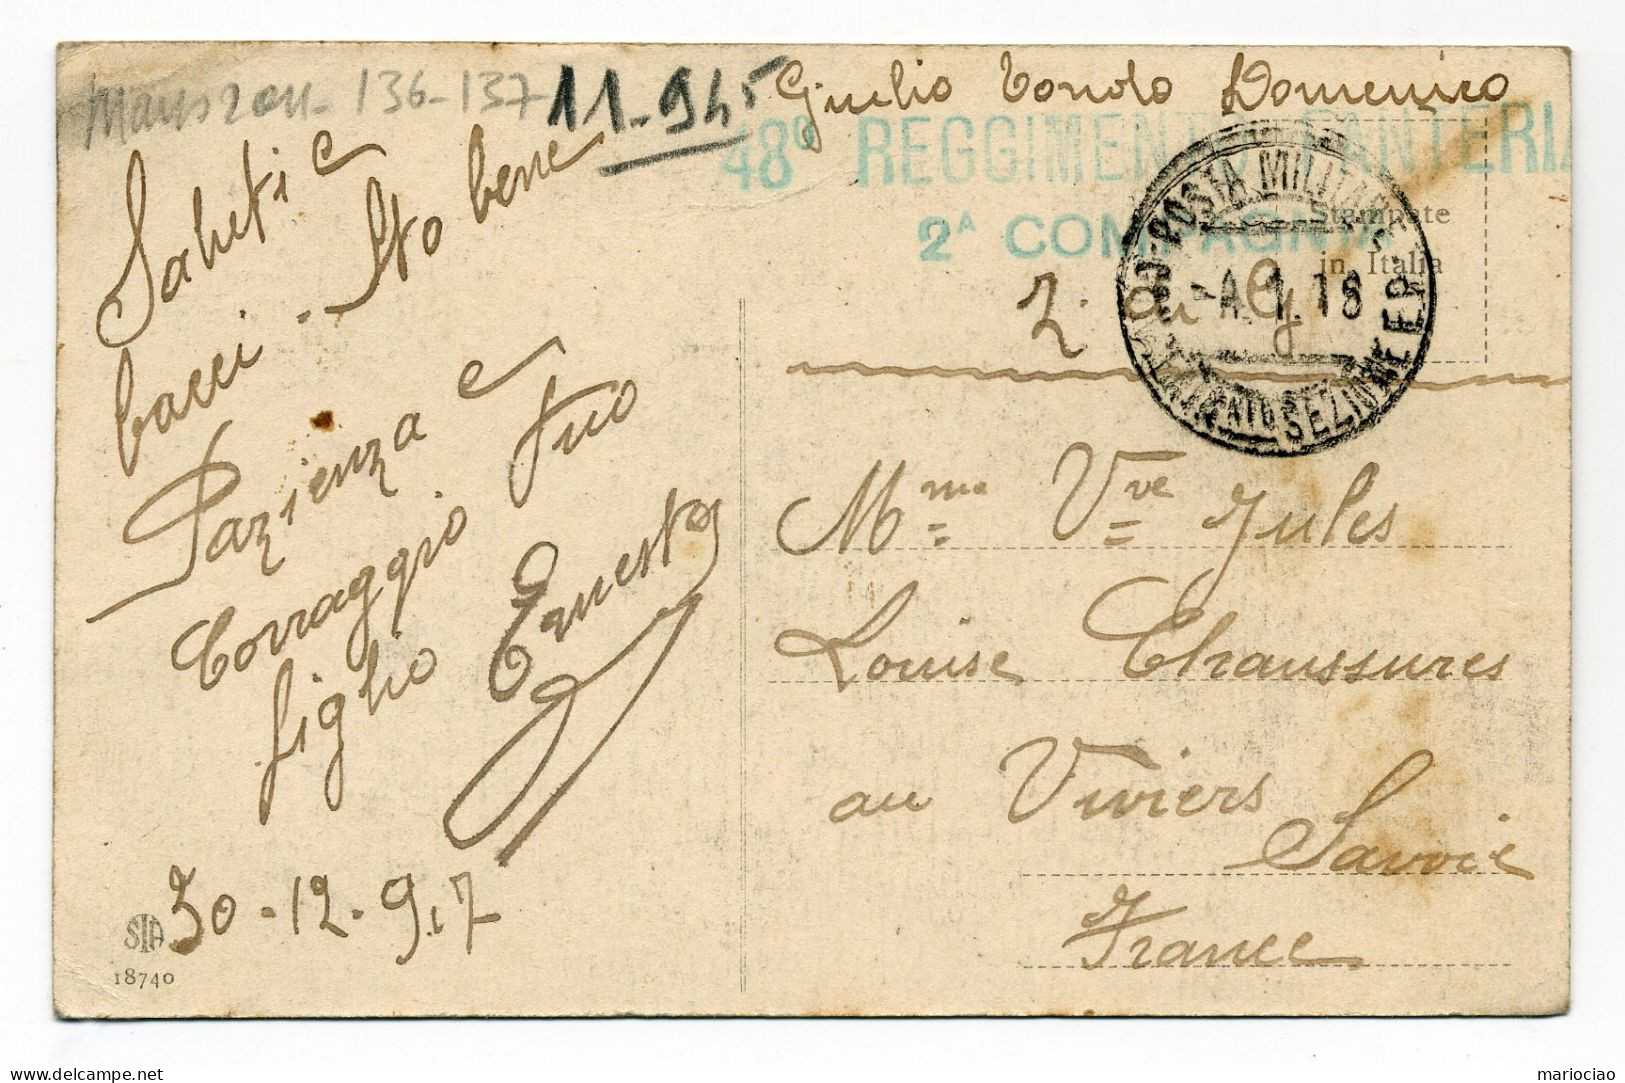 136-137
11-945
Giulio Tondo Domenico
48º REGGIMENTO FANTERIA
2ª COMPAGNIA
POSTA MILITARE
SEZIONE
1.18
Stampate
in Italia
Saluti e
bacci. Sto bene
Pazienza e
Corraggio tuo
figlio Ernesto
30-12-917
SIA
18740
Mme Vve Jules
Louise Chaussures
au Viviers
Savoie
France
delcampe.net
mariociao